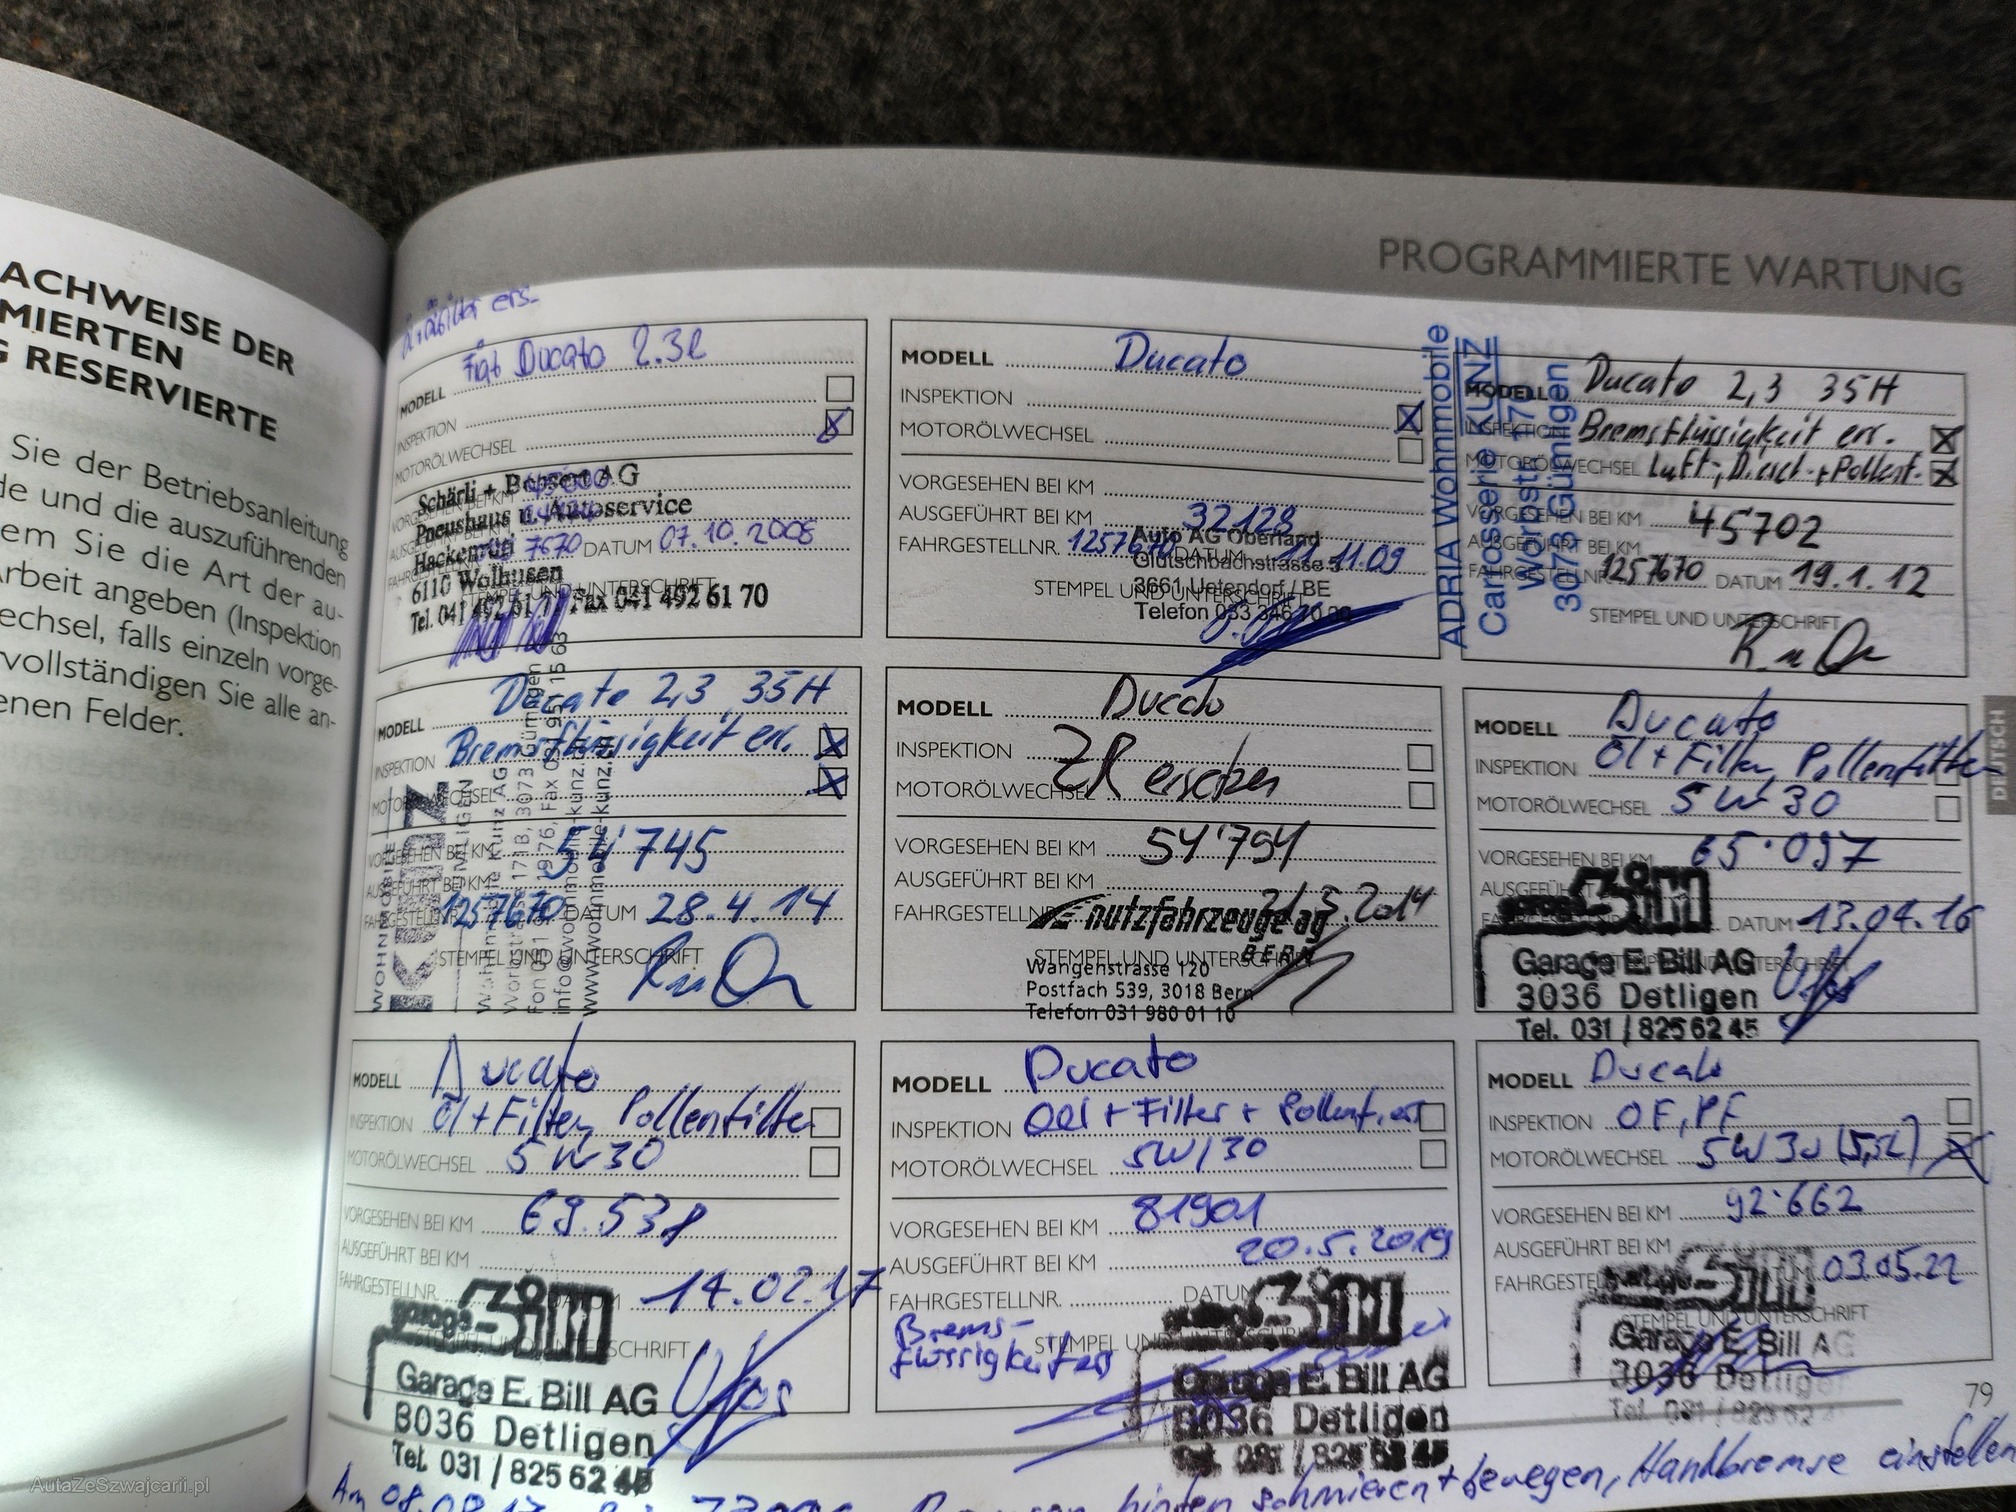 ACHWEISE DER
MIERTEN
G RESERVIERTE
Sie der Betriebsanleitung
de und die auszuführenden
em Sie die Art der au-
Arbeit angeben (Inspektion
echsel, falls einzeln vorge-
vervollständigen Sie alle an-
enen Felder.
PROGRAMMIERTE WARTUNG
ers.
MODELL Fiat Ducato 2.3l
INSPEKTION
MOTORÖLWECHSEL
Schärli + AG
Pneuhaus u. Autoservice
Hackenrüti 7670 DATUM 07.10.2008
6110 Wolhusen
STEMPEL UND UNTERSCHRIFT
Tel. 041 492 61 71 Fax 041 492 61 70
MODELL Ducato
INSPEKTION
MOTORÖLWECHSEL
VORGESEHEN BEI KM
AUSGEFÜHRT BEI KM 32128
FAHRGESTELLNR. 1257670 DATUM 11.11.09
Auto AG Oberland
Glütschbachstrasse
STEMPEL UND UNTERSCHRIFT
3661 Uetendorf / BE
Telefon 033 346
ADRIA Wohnmobile
Carrosserie KUNZ
Worbstr. 171
3073 Gümligen
MODELL Ducato 2,3 35H
INSPEKTION Bremsflüssigkeit ers.
MOTORÖLWECHSEL Luft-, Diesel- + Pollenf.
VORGESEHEN BEI KM 45702
AUSGEFÜHRT BEI KM
FAHRGESTELLNR. 1257670 DATUM 19.1.12
STEMPEL UND UNTERSCHRIFT
MODELL Ducato 2,3 35H
INSPEKTION Bremsflüssigkeit err.
MOTORÖLWECHSEL
VORGESEHEN BEI KM 54'745
AUSGEFÜHRT BEI KM
FAHRGESTELLNR. 1257670 DATUM 28.4.14
STEMPEL UND UNTERSCHRIFT
WOHNMOBILE
KUNZ
GÜMLIGEN
Kunz AG
171B, 3073 Gümligen
info@wohnmobile-kunz.
www.wohnmobile-kunz.
MODELL Ducato
INSPEKTION ZR ersetzen
MOTORÖLWECHSEL
VORGESEHEN BEI KM 54'794
AUSGEFÜHRT BEI KM
FAHRGESTELLNR. 21.5.2014
nutzfahrzeuge ag
BERN
STEMPEL UND UNTERSCHRIFT
Wangenstrasse 120
Postfach 539, 3018 Bern
Telefon 031 980 01 10
MODELL Ducato
INSPEKTION Öl + Filter, Pollenfilter
MOTORÖLWECHSEL 5W30
VORGESEHEN BEI KM 65'097
AUSGEFÜHRT
DATUM 13.04.16
garage Bill
Garage E. Bill AG
3036 Detligen
Tel. 031 / 825 62 45
MODELL Ducato
INSPEKTION Öl + Filter, Pollenfilter
MOTORÖLWECHSEL 5W30
VORGESEHEN BEI KM 69.538
AUSGEFÜHRT BEI KM
FAHRGESTELLNR. DATUM 14.02.17
STEMPEL UND UNTERSCHRIFT
garage Bill
Garage E. Bill AG
3036 Detligen
Tel. 031 / 825 62 45
MODELL Ducato
INSPEKTION Oel + Filter + Pollenf. ers
MOTORÖLWECHSEL 5W/30
VORGESEHEN BEI KM 81901
AUSGEFÜHRT BEI KM 20.5.2019
FAHRGESTELLNR. DATUM
Brems-
flüssigkeit ers
STEMPEL UND UNTERSCHRIFT
garage Bill
Garage E. Bill AG
3036 Detligen
Tel. 031 / 825 62 45
MODELL Ducato
INSPEKTION OF, PF
MOTORÖLWECHSEL 5W30 (5,5L)
VORGESEHEN BEI KM 92'662
AUSGEFÜHRT BEI KM
FAHRGESTELLNR. 03.05.22
STEMPEL UND UNTERSCHRIFT
Garage E. Bill AG
3036 Detligen
Tel. 031 / 825 62
DEUTSCH
79
Am 08.08.17 hinten schmieren + bewegen, Handbremse einstellen
AutaZeSzwajcarii.pl